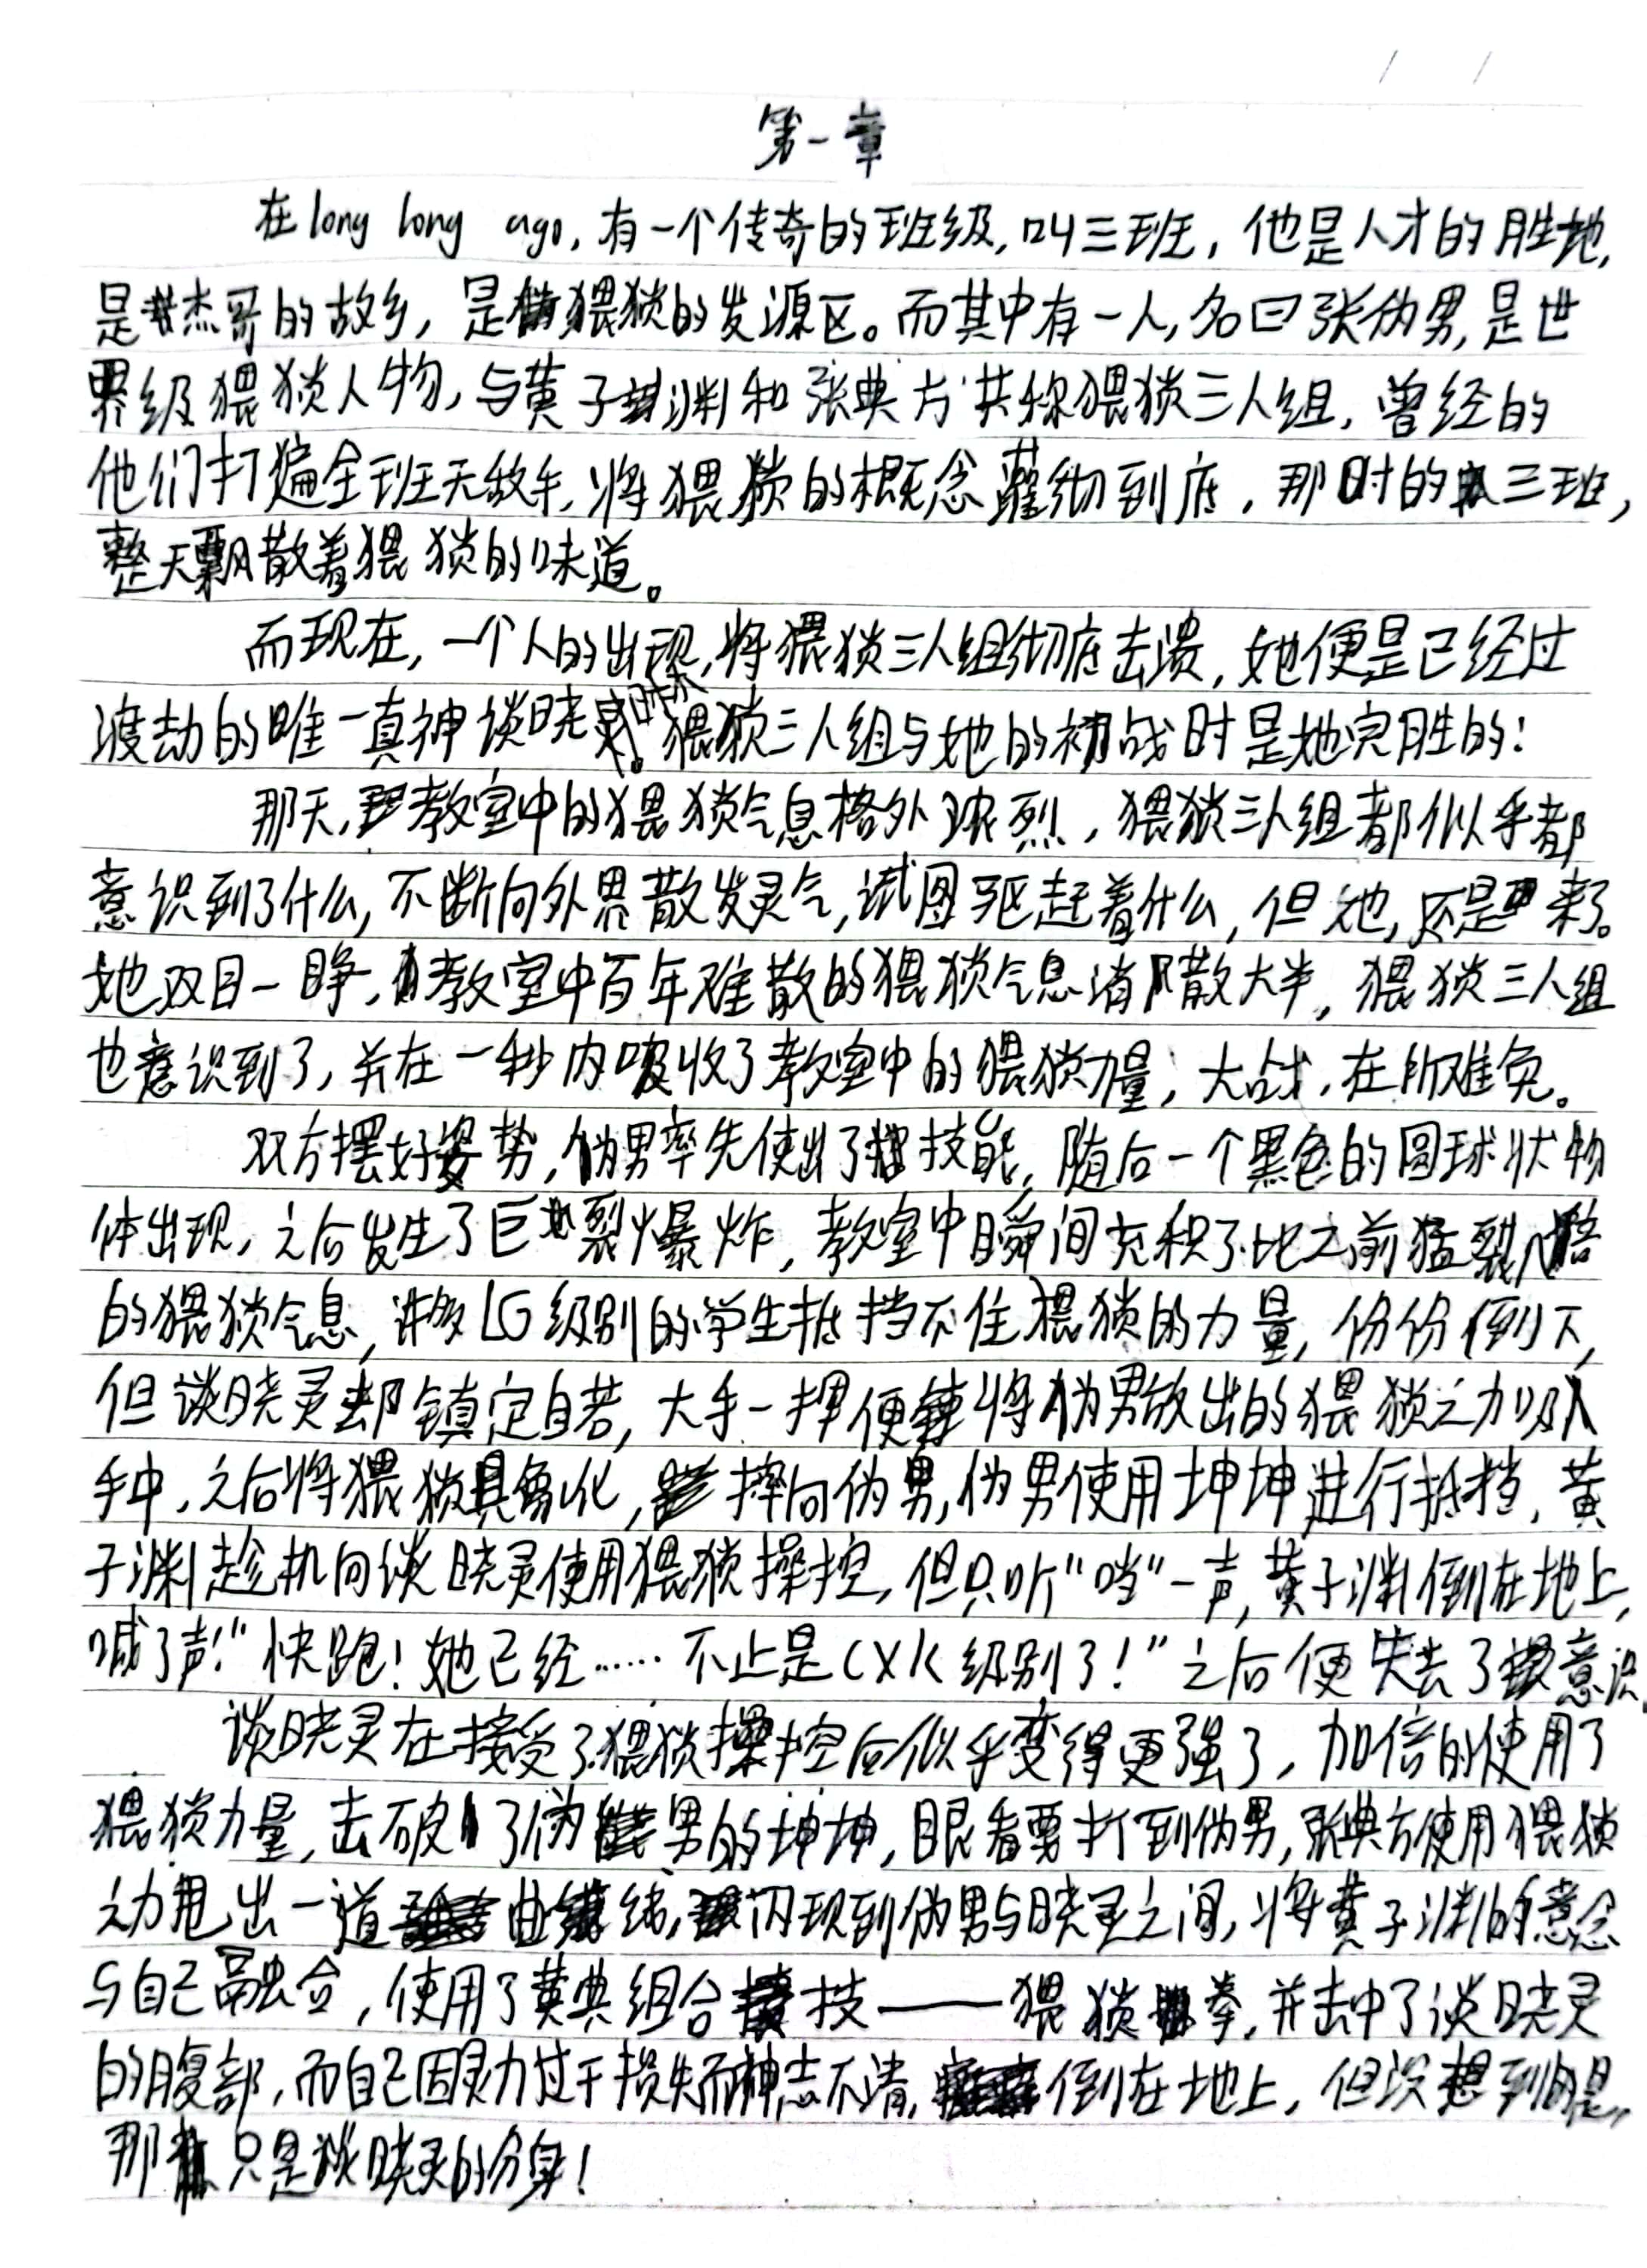 第一章
在long long ago,有一个传奇的班级,叫三班,他是人才的胜地,
是杰哥的故乡,是猥猥琐的发源区。而其中有一人,名曰张伪男,是世
界级猥琐人物,与黄子渊和张典方共称猥琐三人组,曾经的
他们打遍全班无敌手,将猥琐的概念灌彻到底,那时的三班,
整天飘散着猥琐的味道。
而现在,一个人的出现,将猥琐三人组彻底击溃,她便是已经过
渡劫的唯一真神谈晓灵。猥琐三人组与她的初战时是她完胜的:
那天,教室中的猥琐气息格外浓烈,猥琐三人组都似乎都
意识到了什么,不断向外界散发灵气,试图驱赶着什么,但她,还是来了。
她双目一睁,教室中百年难散的猥琐气息消散大半,猥琐三人组
也意识到了,并在一秒内吸收了教室中的猥琐力量,大战,在所难免。
双方摆好姿势,伪男率先使出了技能,随后一个黑色的圆球状物
体出现,之后发生了巨裂爆炸,教室中瞬间充积了比之前猛裂八倍
的猥琐气息,许多LG级别的学生抵挡不住猥琐的力量,份份倒下,
但谈晓灵却镇定自若,大手一挥便将伪男放出的猥琐之力吸入
手中,之后将猥琐具象化,摔向伪男,伪男使用坤坤进行抵挡,黄
子渊趁机向谈晓灵使用猥琐操控,但只听“当”一声,黄子渊倒在地上,
喊了声:“快跑!她已经……不止是CXK级别了!”之后便失去了意识。
谈晓灵在接受了猥琐操控后似乎变得更强了,加倍的使用了
猥琐力量,击破了伪男的坤坤,眼看要打到伪男,张典方使用猥琐
之力甩出一道曲线,闪现到伪男与晓灵之间,将黄子渊的意念
与自己融合,使用了黄典组合技——猥琐拳,并击中了谈晓灵
的腹部,而自己因灵力过于损失而神志不清,倒在地上,但没想到的是,
那只是谈晓灵的分身!